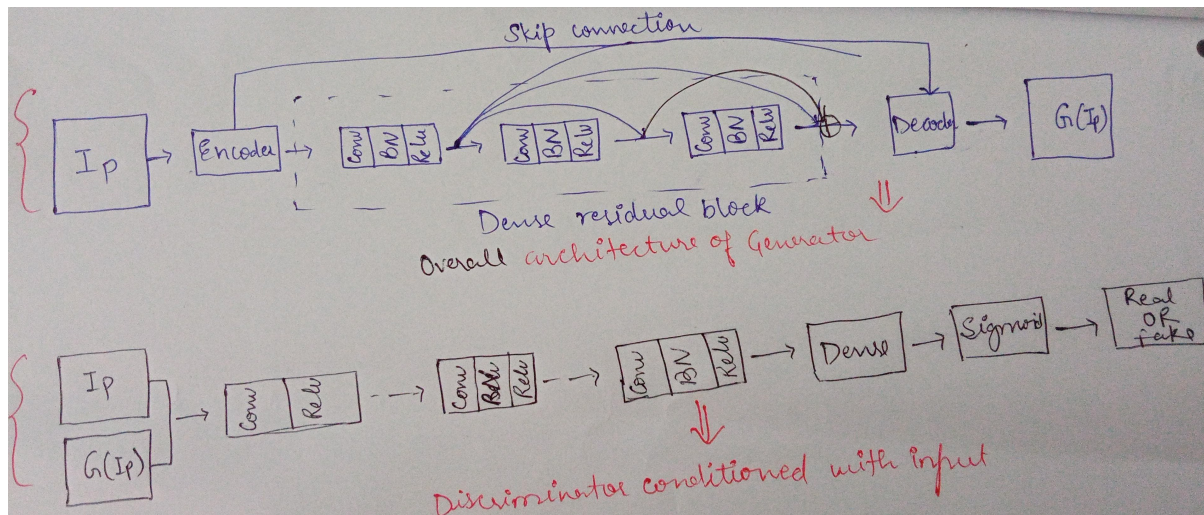 Skip connection
Ip
Encoder
Conv BN Relu
Conv BN Relu
Conv BN Relu
Decoder
G(Ip)
Dense residual block
Overall architecture of Generator
Ip
G(Ip)
Conv Relu
Conv BN Relu
Conv BN Relu
Dense
Sigmoid
Real
OR
fake
Discriminator conditioned with input